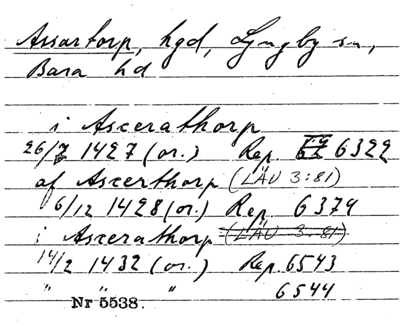 Assartorp, hgd, Lyngby sn,
Bara hd
i Ascerathorp
26/7 1427 (or.) Rep. 6322
af Ascerthorp (LÄU 3:81)
6/12 1428 (or.) Rep. 6379
i Ascerathorp (LÄU 3:81)
14/2 1432 (or.) Rep. 6543
" " " 6544
Nr 5538.